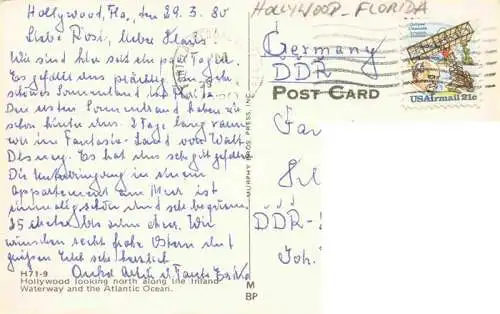 Hollywood, Fla, den 29.3.80
Liebe Rosi, lieber Hans
Wir sind hier seit ein paar Tagen.
Es gefällt uns prächtig. Ein sehr
schönes Sonnenland ist Florida.
Den ersten Sonnenbrand haben wir
schon hinter uns. 2 Tage lang waren
wir im Fantasie-Land von Walt
Disney. Es hat uns sehr gut gefallen
Die Unterbringung in einem
Appartement am Meer ist
einmalig schön und sehr bequem.
Wir
wünschen recht frohe Ostern und
grüßen Euch sehr herzlich
Onkel u Tante
H71-9
Hollywood looking north along the Inland
Waterway and the Atlantic Ocean.
MURPHY BROS PRESS, INC.
M
BP
HOLLYWOOD - FLORIDA
Germany
DDR
POST CARD
USAirmail 21c
DDR-
Joh.